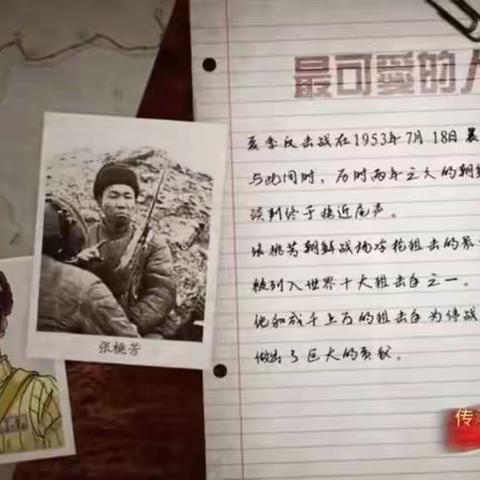 最可愛的人
夏季反击战在1953年7月18日
与此同时，历时两年之久的朝
谈判终于接近尾声。
张桃芳朝鲜战场冷枪狙击的
被列入世界十大狙击手之一。
他和成千上万的狙击手为停战
做出了巨大的贡献。
张桃芳
传